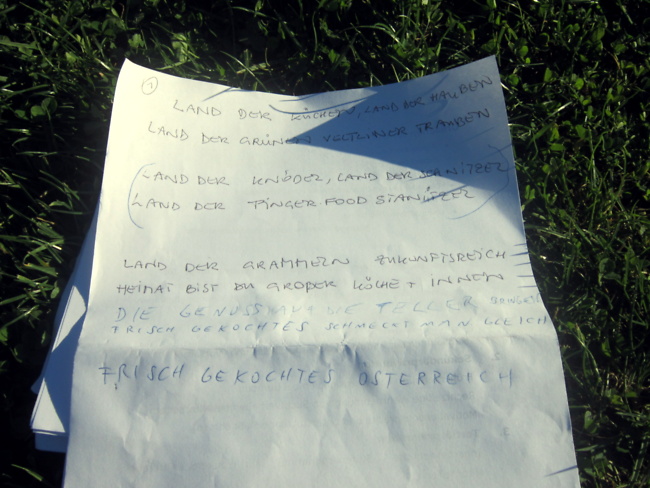 ①
LAND DER KÜCHEN, LAND DER HAUBEN
LAND DER GRÜNEN VELTLINER TRAUBEN
(LAND DER KNÖDEL, LAND DER SCHNITZEL)
LAND DER FINGER FOOD STANITZEL
LAND DER GRAMMELN ZUKUNFTSREICH
HEIMAT BIST DU GROßER KÖCHE + INNEN
DIE GENUSS AUF DIE TELLER BRINGEN
FRISCH GEKOCHTES SCHMECKT MAN GLEICH
FRISCH GEKOCHTES ÖSTERREICH